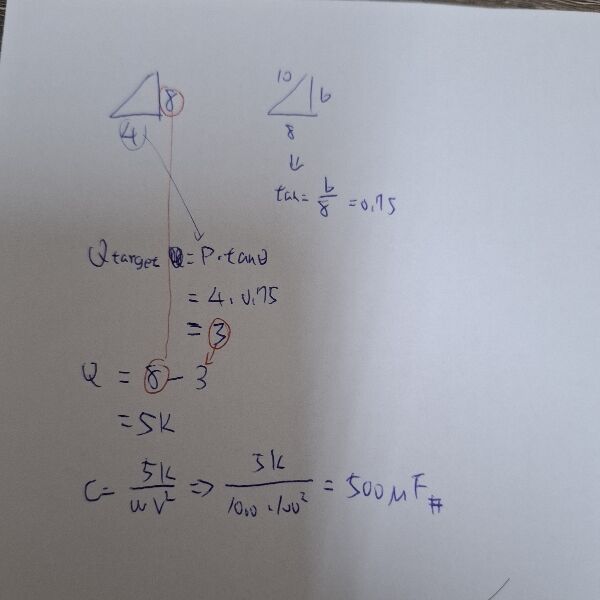 8
4
10
6
8
tan = 6/8 = 0.75
Qtarget = P·tanθ
= 4. 0.75
= 3
Q = 8 - 3
= 5K
C = 5K/wV² => 5K/1000·100² = 500μF #